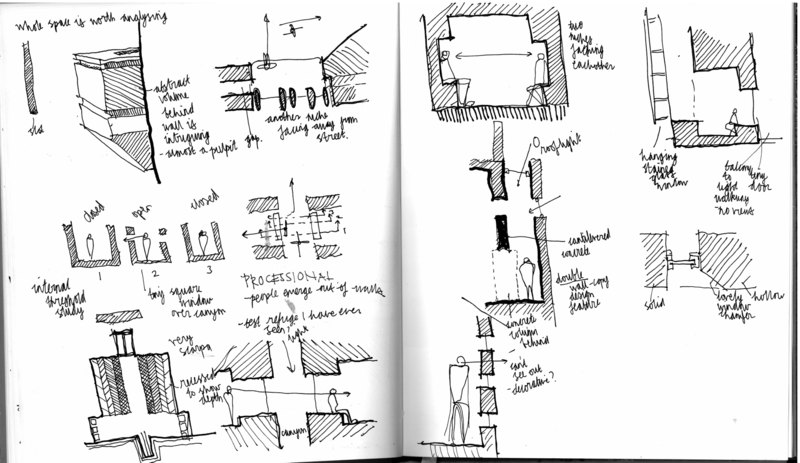 whole space is worth analysing
slit
abstract
volume
behind
wall is
intriguing
- almost a pulpit
gap.
another niche
facing away from
street.
closed
open
closed
1
2
3
internal
threshold
study
tiny square
window
over canyon
PROCESSIONAL
- people emerge out of walls
- best refuge I have ever
seen!
light
very
scarpa
recessed
to show
depth
canyon
two
niches
facing
eachother
rooflight
hanging
stained
glass
window
balcony
to
light
walkway
no views
tiny
door
cantilevered
concrete
double
wall - copy
design
feature
concrete
column
behind
can't
see out
- decorative?
solid
lovely
window
chamfer
hollow